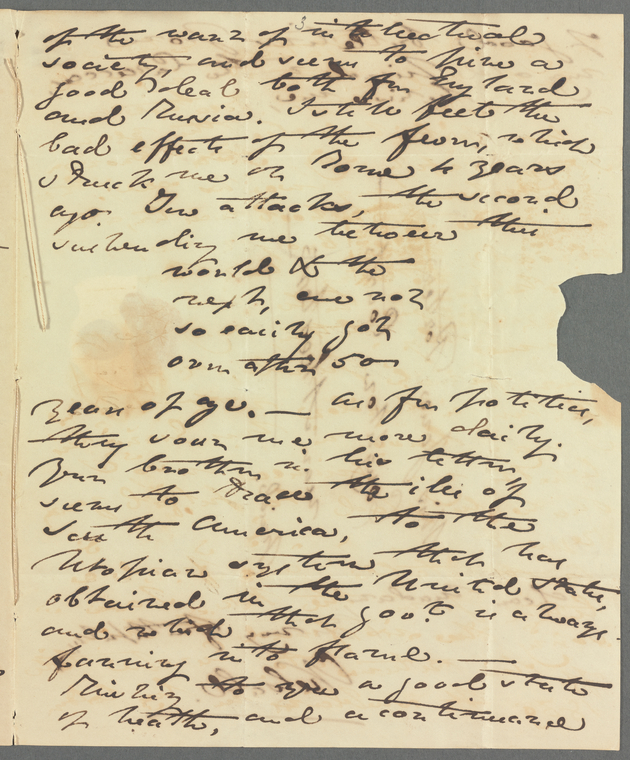 of the want of intellectual
society, and seems to pine a
good deal both for England
and Russia. I still feel the
bad effects of the fever, which
struck me in Rome 4 years
ago. Two attacks, the second
suspending me between this
world & the
next, are not
so easily got
over after 50
years of age. — As for politics,
they sour me more daily.
Your brother in his letters
seems to trace the ills of
South America, to the
Utopian system that has
obtained in the United States,
and which that govt. is always
fanning into flame. —
Wishing to you a good state
of health, and a continuance